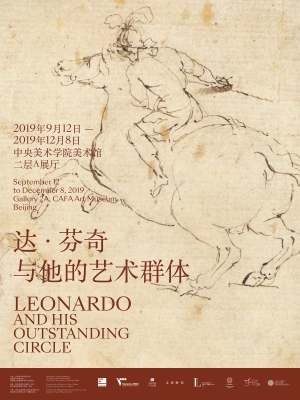 2019年9月12日 —
2019年12月8日
中央美术学院美术馆
二层A展厅
September 12
to December 8, 2019
Gallery 2A, CAFA Art Museum,
Beijing
达·芬奇
与他的艺术群体
LEONARDO
AND HIS
OUTSTANDING
CIRCLE